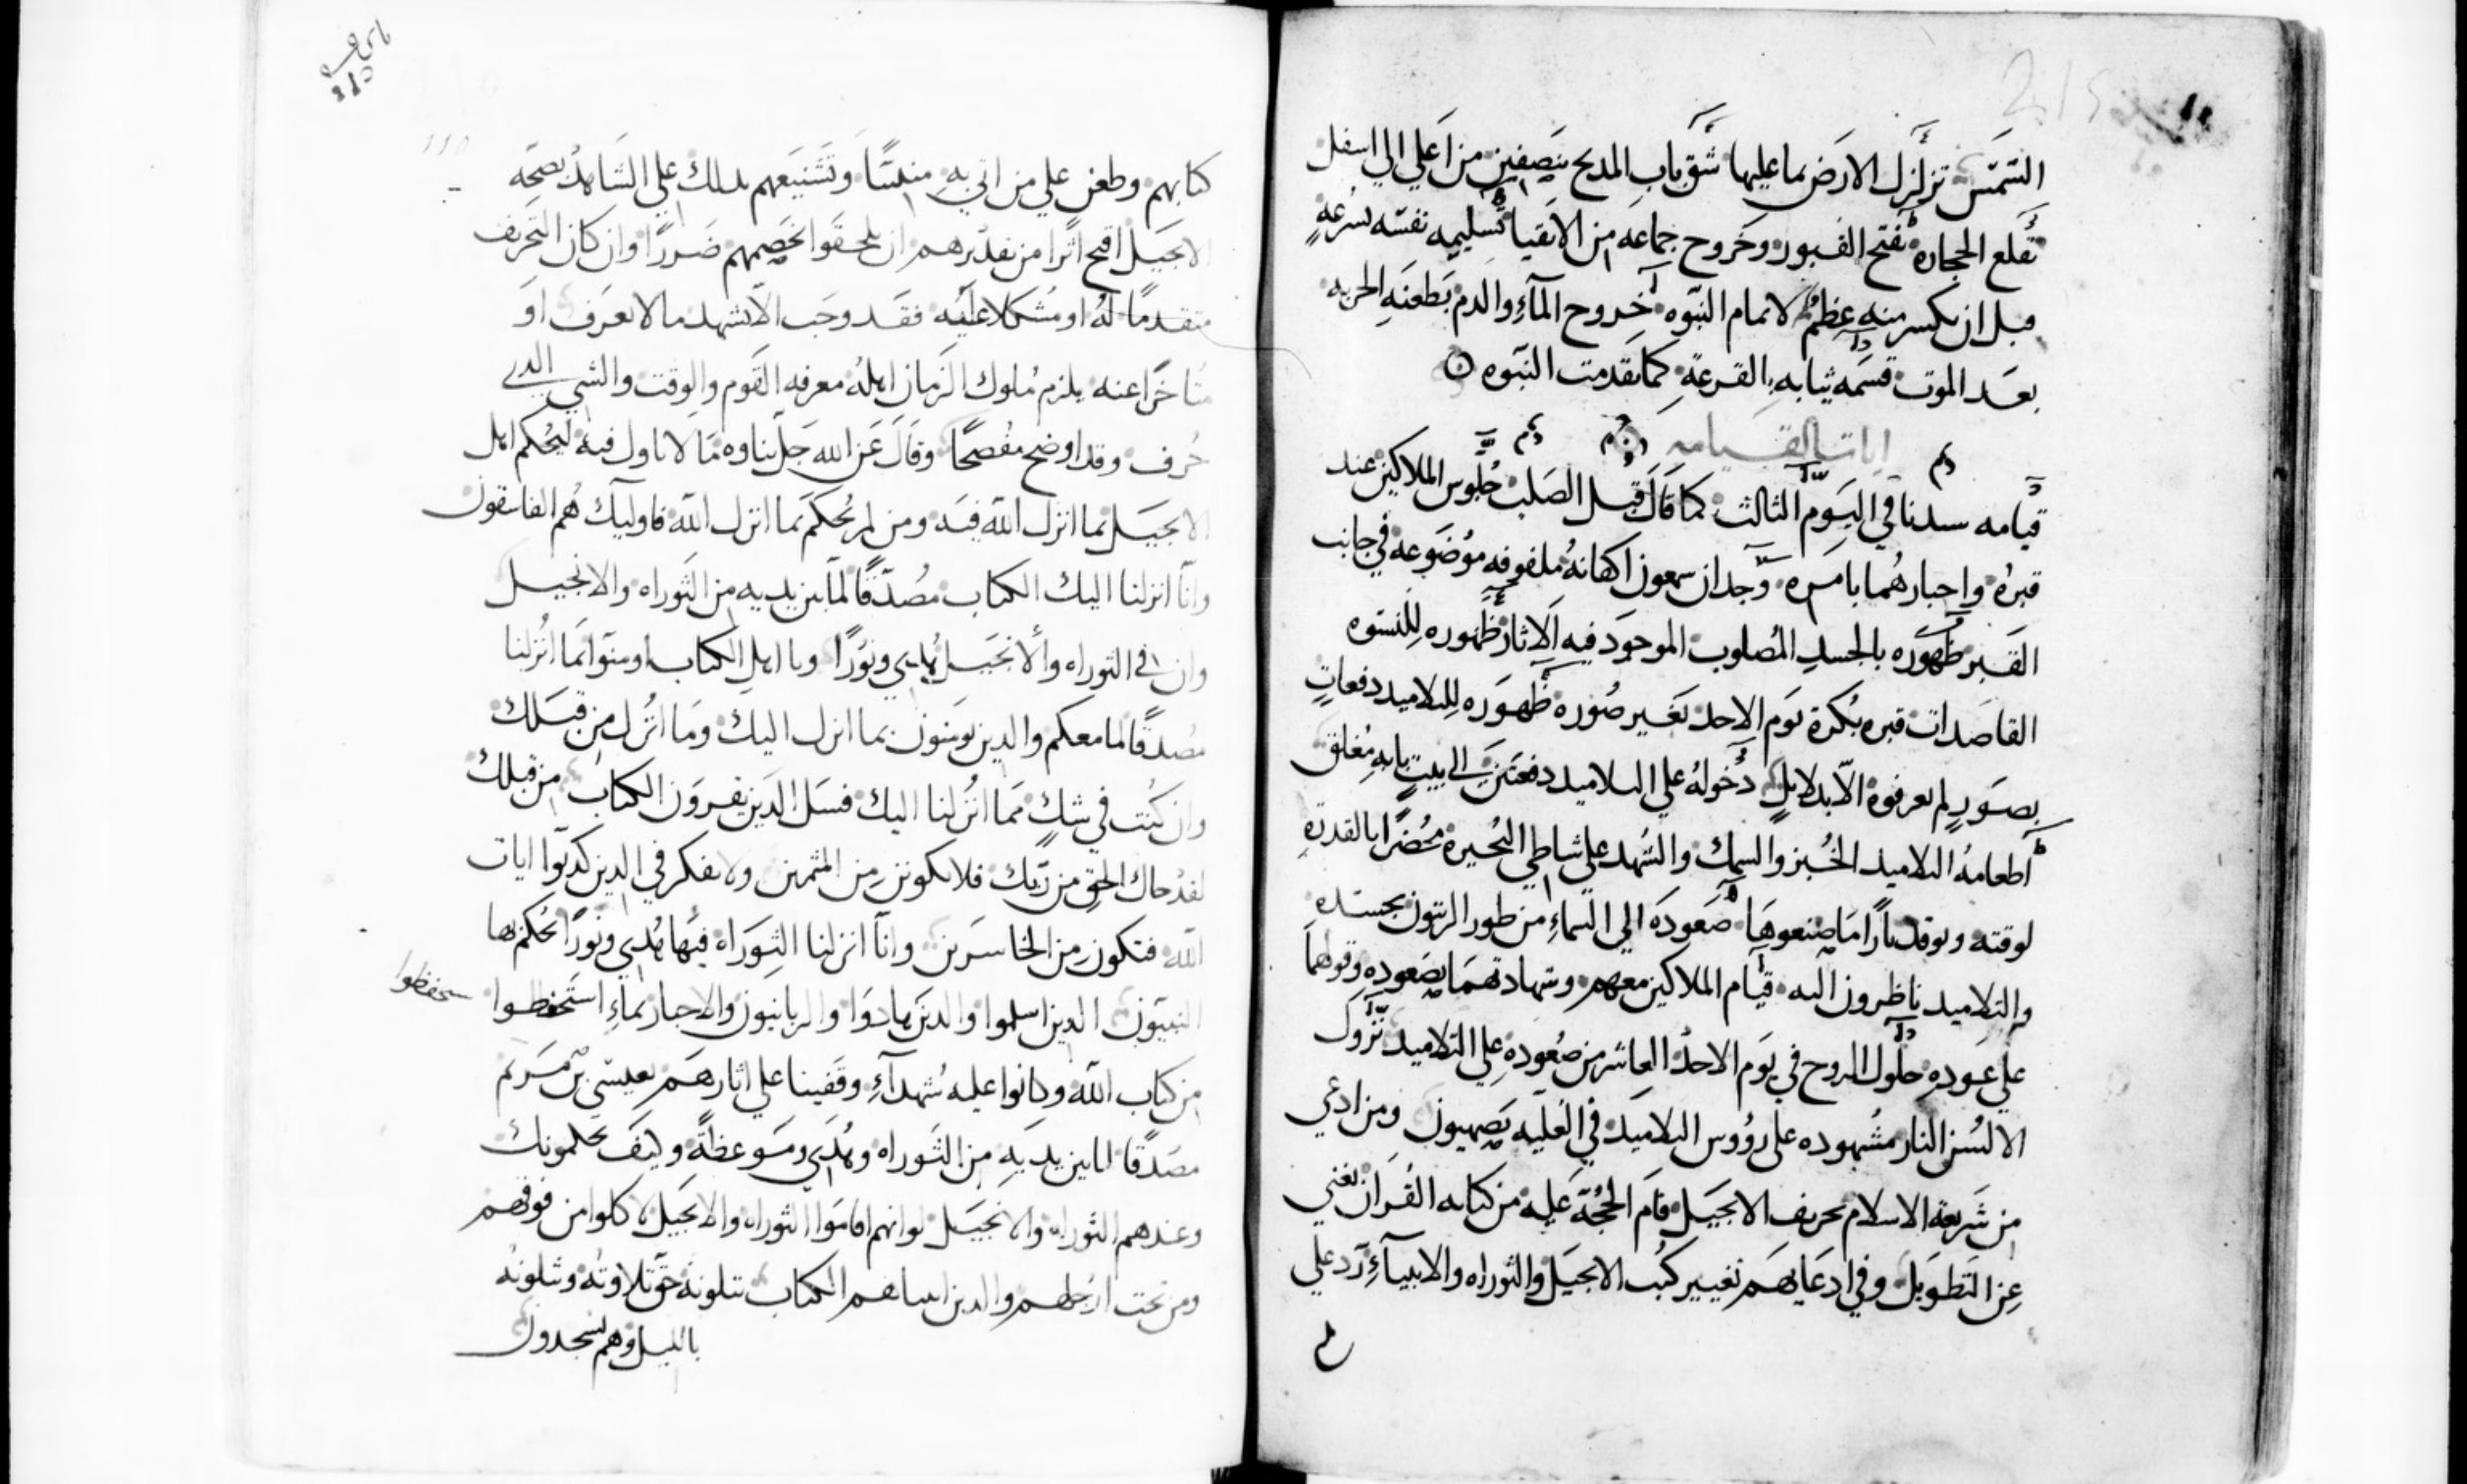 الشمس تزلزل الارض بما عليها شق باب المديح بنصفين من اعلي الي اسفل
تقلع الحجاره تفتح القبور وخروج جماعه من الاتقيا تسليمه نفسه بسرعةٍ
قبل ان يكسر منه عظمٌ لاتمام النبوه خروج المآءِ والدم بطعنَهِ الحربه
بعد الموت قسمه ثيابه بالقرعة كما تقدمت النبوه
ايات القيامه
قيامه سيدنا في اليوم الثالث كما قال قبل الصلب جلوس الملاكين عند
قبره واخبارهما بامره وجدان سمعون اكفانهُ ملفوفه موضوعه في جانب
القبر ظهوره بالجسد المصلوب الموجود فيه الاثار ظهوره للنسوه
القاصدات قبره بُكرة يوم الاحد تغير صُوره ظهوره للتلاميد دفعاتٍ
بصورٍ لم يعرفوه الّا بدلايلٍ دُخوله علي التلاميد دفعتين الي بيتٍ بابه مُغلق
اطعامهُ التلاميد الخُبز والسمك والشهد علي شاطي البُحيرة محُضرًا بالقدرة
لوقته وبوقد نارًا ما صنعوها صعوده الي السماءِ من طور الزيتون بجسده
والتلاميد ناظرون اليه قيام الملاكين معهم وشهادتهما بصعوده وقولهما
علي عوده حلول الروح في يوم الاحد العاشر من صُعودهِ علي التلاميد نزول
الالسُن النار مشهوده علي رؤوس التلاميد في العليه بصهيون ومن ادعي
من شريعة الاسلام تحريف الانجيل قام الحُجّة عليه من كتابه القران نغني
عن التطويل وفي ادعايهم تغيير كتب الانجيل والتوراه والانبيآءِ رد علي
كتابهم وطعن علي من اتي به منبيًا وتشنيعهم بدلك علي الشاهد بصحه
الانجيل اقبح اثرًا من تقديرهم ان يلحقوا بخصمهم ضررًا وان كان التحريف
متقدمًا لهُ او مشكلا عليه فقد وجب الّا يشهد ما لا يعرف او
متاخرًا عنه يلزم مُلوك الزمان اهله معرفه القوم والوقت والشي الدي
حُرف وقد اوضح مفُصحًا وقال عن الله جل ثناوه ما لا تاول فيه ليحكم اهل
الانجيل بما انزل الله فيه ومن لم يحكم بما انزل الله فاوليك هُم الفاسقون
وانّا انزلنا اليك الكتاب مُصدّقًا لما بين يديه من التوراه والانجيل
وان في التوراه والانجيل هُدي ونورًا ويا اهل الكتاب اومنوا بما انُزلنا
مصُدقًا لما معكم والدين يومنون بما انزل اليك وما انُزل من قبلك
وان كُنت في شكٍ مما انُزلنا اليك فسل الدين يقرون الكتاب من قبلك
لقد جاك الحق من ربك فلا تكونن من الممترين ولا تفكر في الدين كدبّوا ايات
الله فتكون من الخاسرين وانا انزلنا التوراه فيها هُدي ونورًا يُحكم بها
النبيون الدين اسلموا والدين هادوا والربانيون والاحبار بماءِ استحفظوا
ستحفظوا
من كتاب الله وكانوا عليه شُهدآءِ وقفينا علي اثارهم بعيسي بن مريم
مصدقًا لما بين يديه من التوراه وهُدي وموعظةً وكيف يحكمونك
وعندهم التوراه والانجيل لو انهم اقاموا التوراه والانجيل لاكلوا من فوقهم
ومن تحت ارجلهم والدين اتيناهم الكتاب يتلونهُ حق تلاوتُه ويتلونُه
بالليل وهم يسجدون